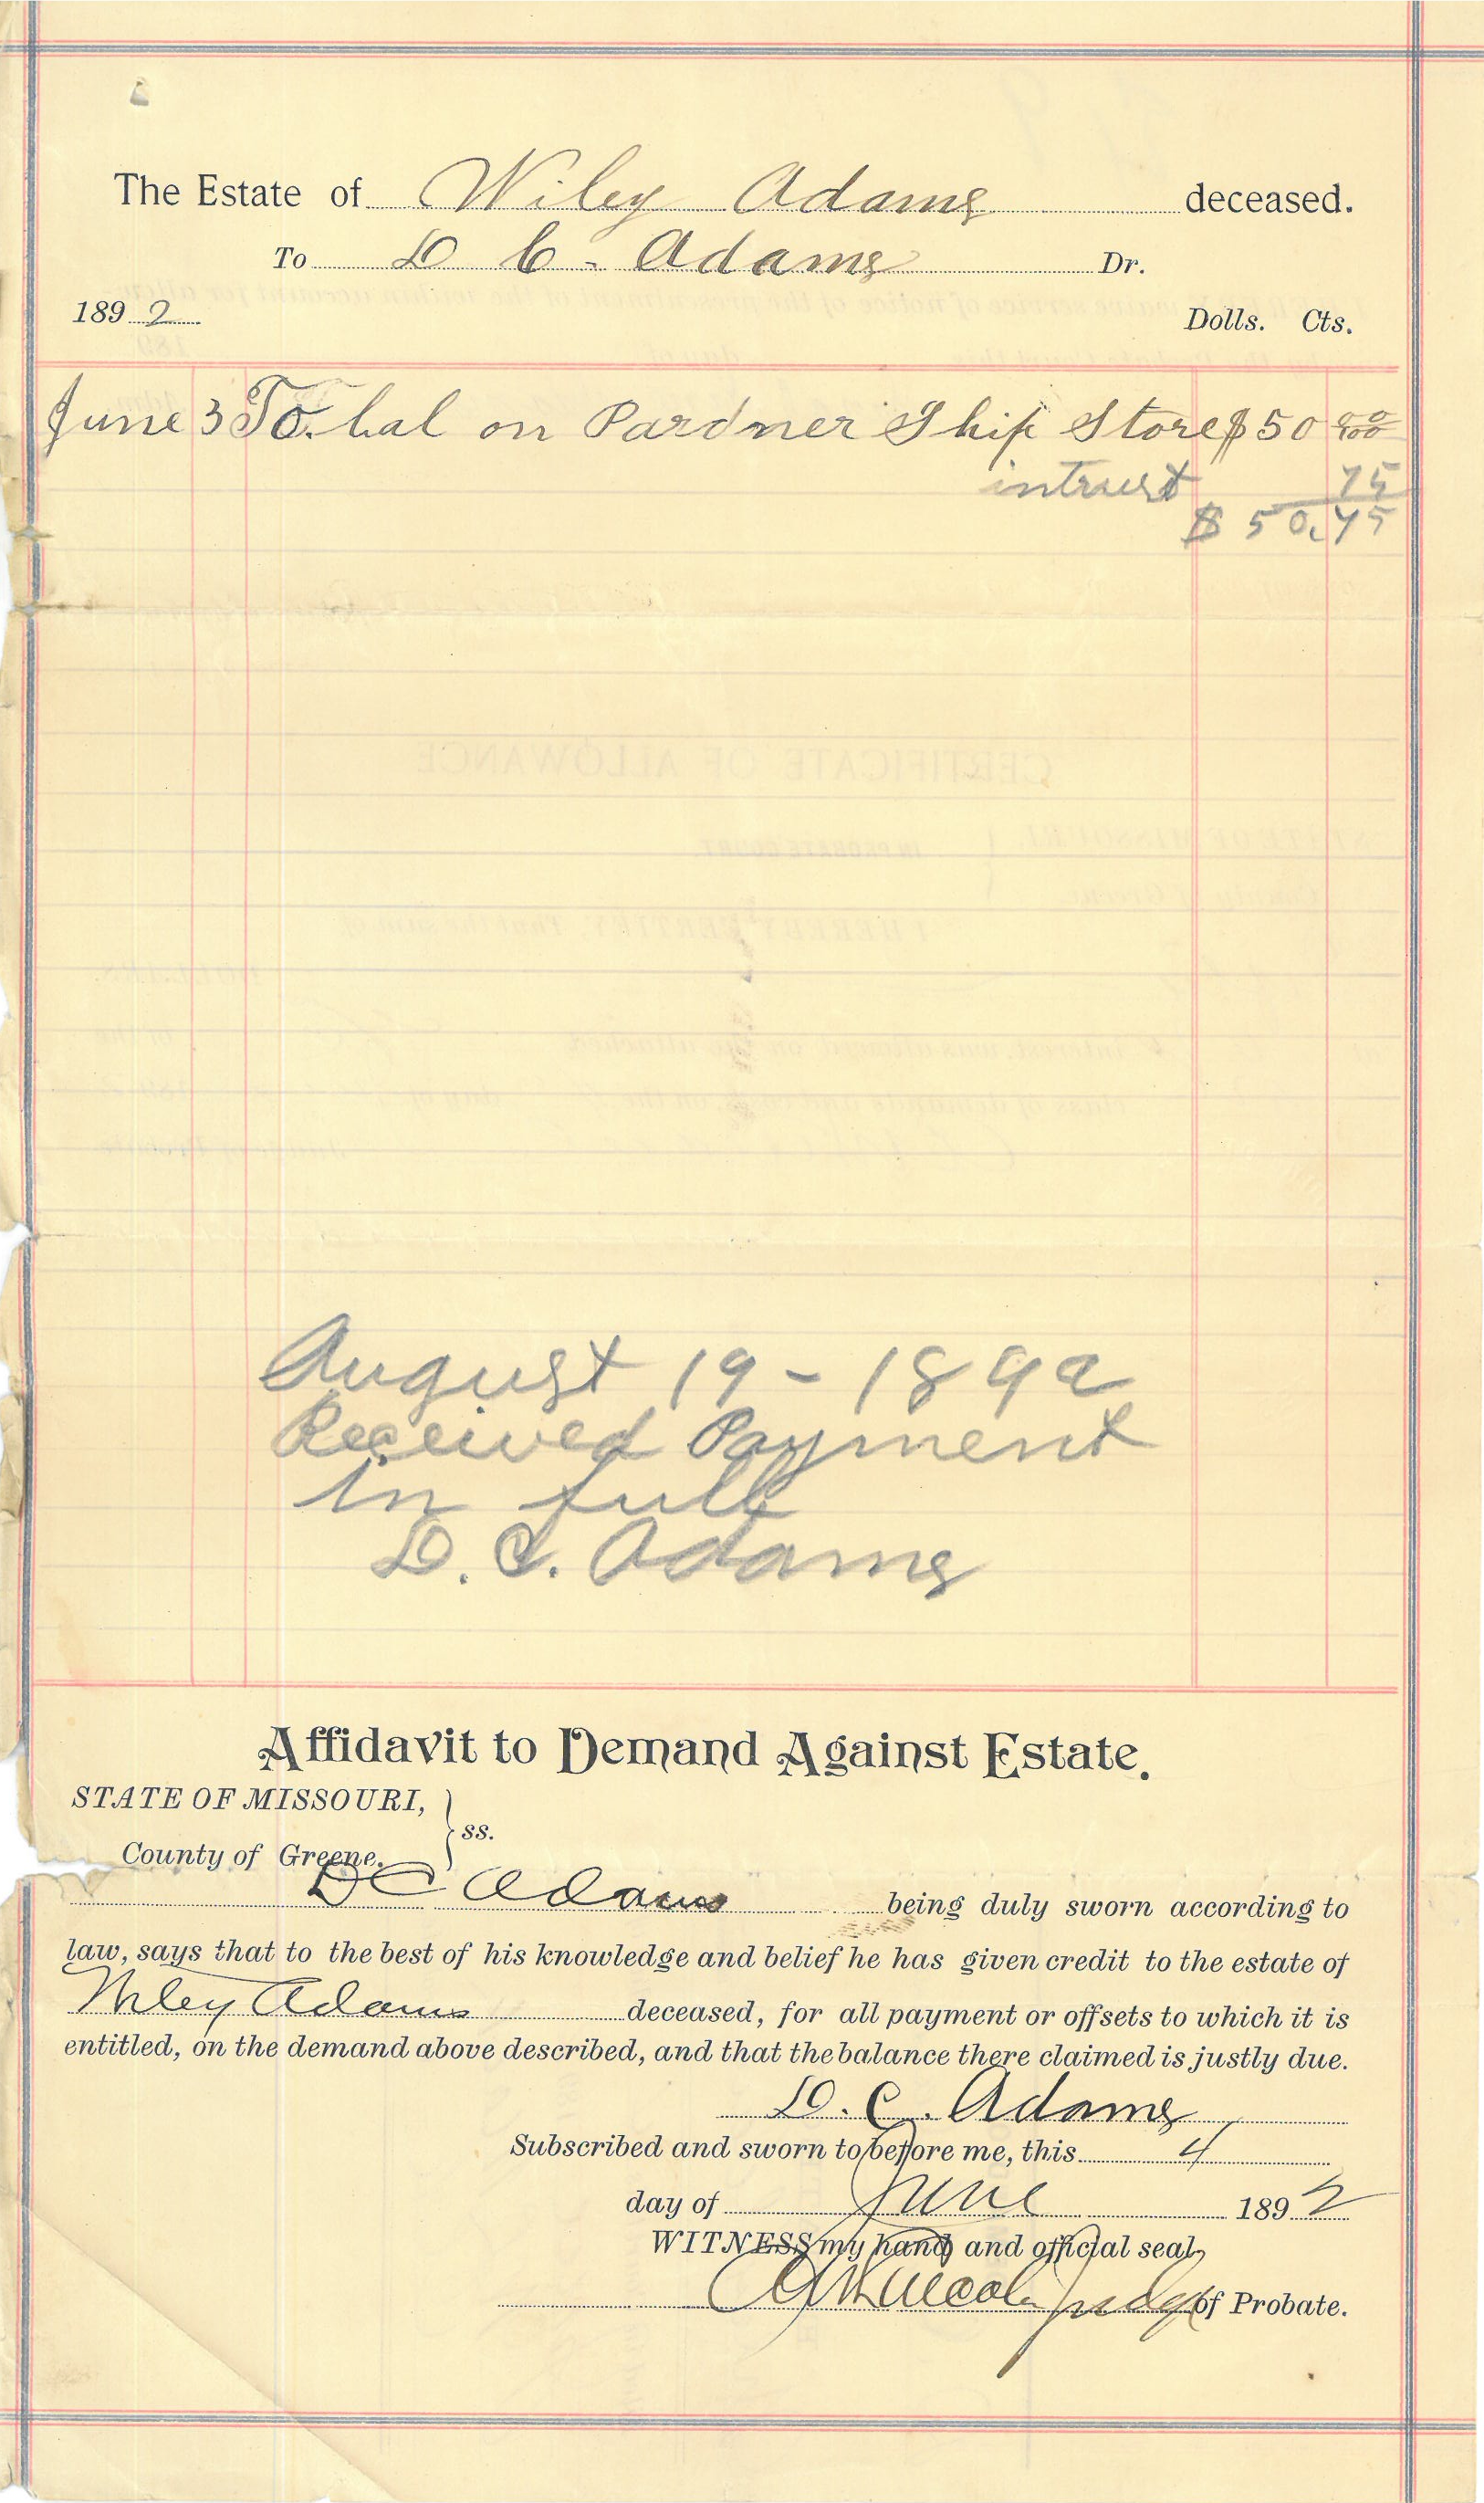 The Estate of Wiley Adams deceased.
To D C. Adams Dr.
1892 Dolls. Cts.
June 3 To. bal on Pardner Ship Store $50 00/100
intrust 75
$ 50.75
August 19 - 1892
Received Payment
in full
D. C. Adams
Affidavit to Demand Against Estate.
STATE OF MISSOURI,
ss.
County of Greene.
D C Adams being duly sworn according to
law, says that to the best of his knowledge and belief he has given credit to the estate of
Wiley Adams deceased, for all payment or offsets to which it is
entitled, on the demand above described, and that the balance there claimed is justly due.
D. C. Adams
Subscribed and sworn to before me, this 4
day of June 1892
WITNESS my hand and official seal,
Judge of Probate.